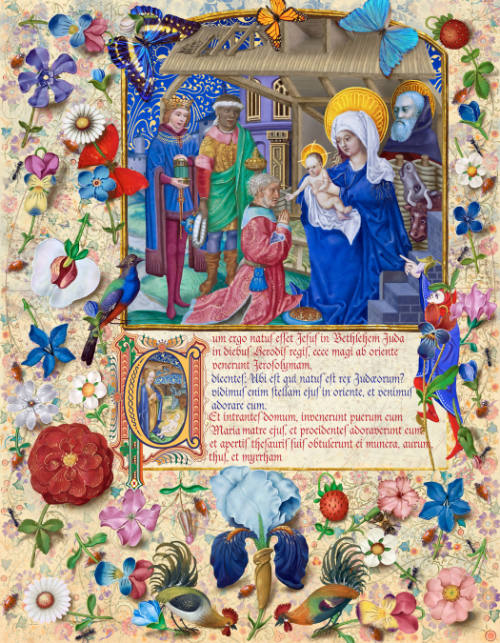 Cum ergo natuſ eſſet Jeſuſ in Bethlehem Juda
in diebuſ Herodiſ regiſ, ecce magi ab oriente
venerunt Jeroſolymam,
dicenteſ: Ubi eſt qui natuſ eſt rex Judæorum?
vidimuſ enim ſtellam ejuſ in oriente, et venimuſ
adorare eum.
Et intranteſ domum, invenerunt puerum cum
Maria matre ejuſ, et procidenteſ adoraverunt eum
et apertiſ theſauriſ ſuiſ obtulerunt ei munera, aurum,
thuſ, et myrrham